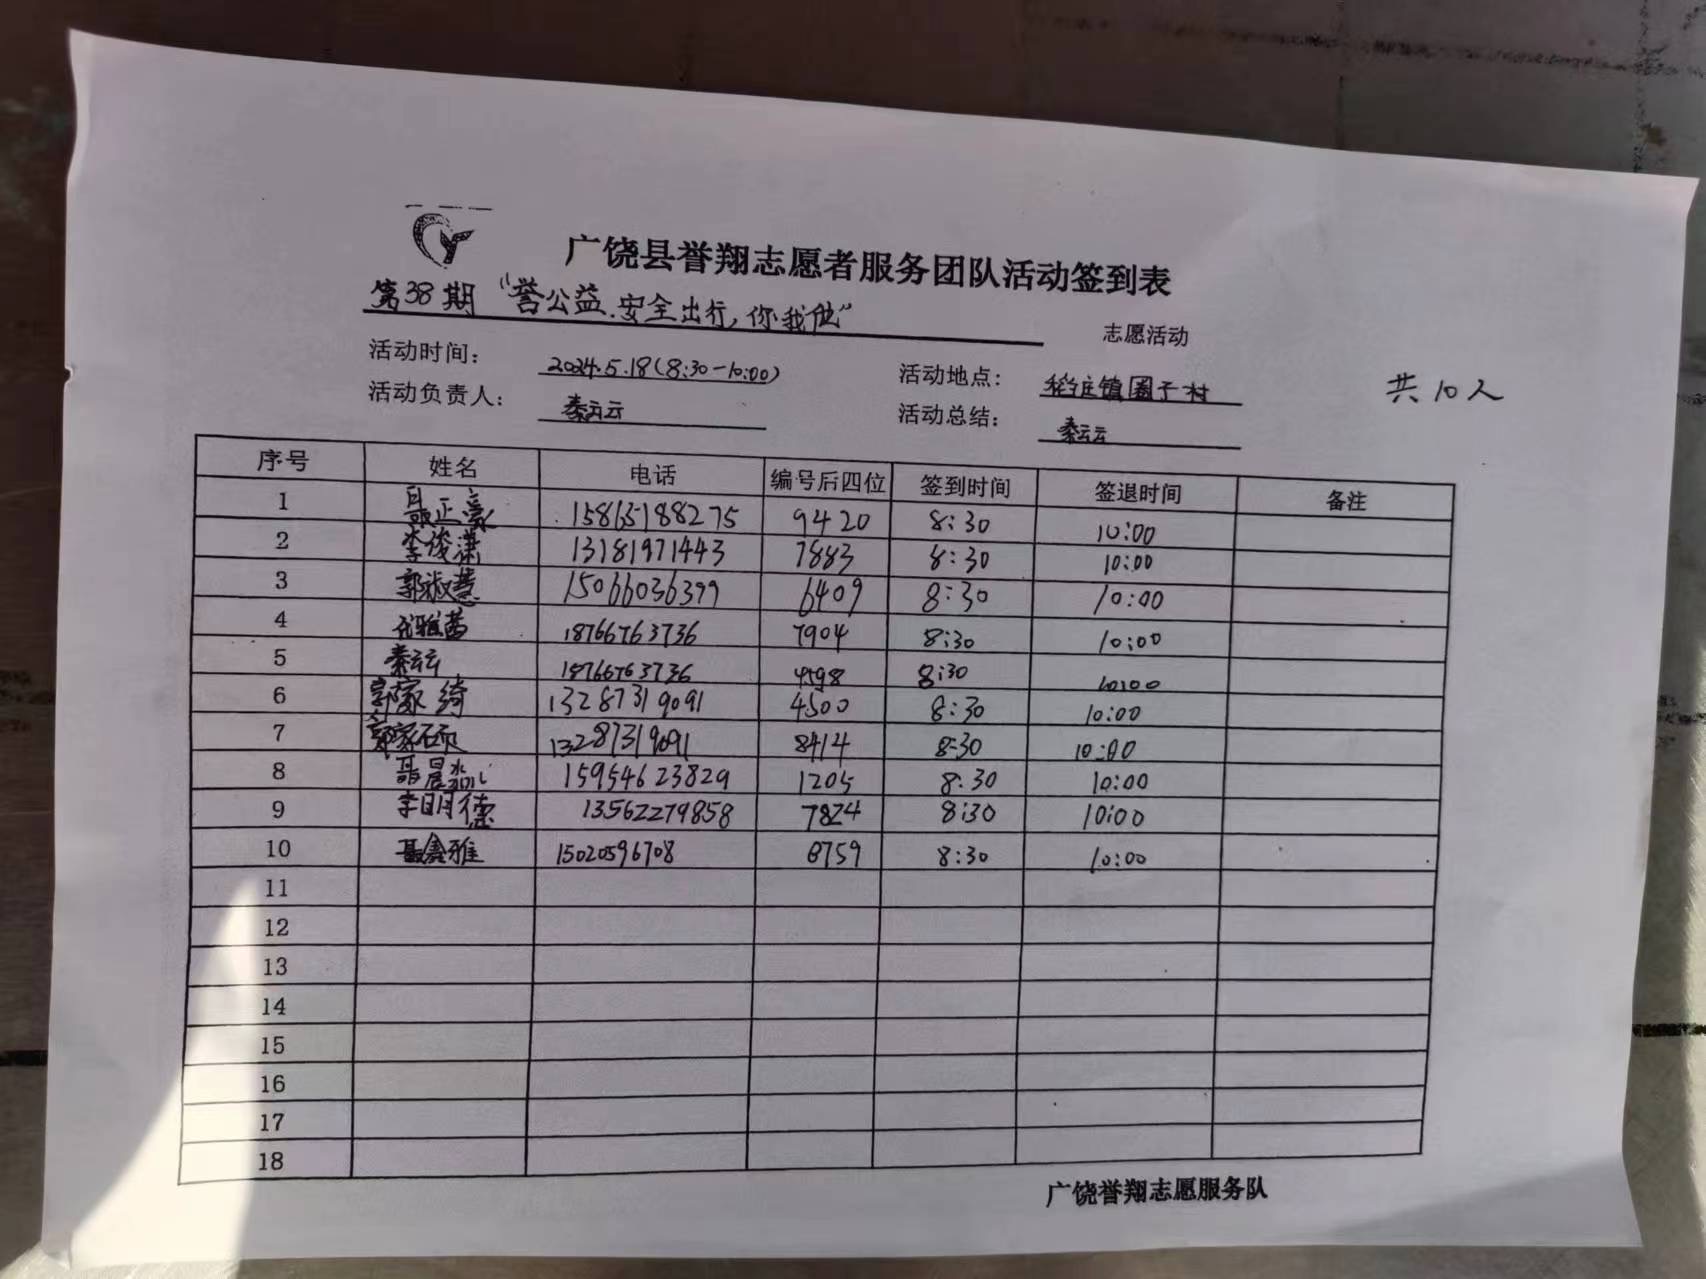 广饶县誉翔志愿者服务团队活动签到表
第38期 "誉公益.安全出行,你我他" 志愿活动
活动时间: 2024.5.18(8:30-10:00) 活动地点: 稻庄镇圈子村 共10人
活动负责人: 秦云云 活动总结: 秦云云
序号 姓名 电话 编号后四位 签到时间 签退时间 备注
1 聂正豪 15865188275 9420 8:30 10:00
2 李俊潇 13181971443 7883 8:30 10:00
3 郭淑慧 15066036399 6409 8:30 10:00
4 雅茜 18766763736 7904 8:30 10:00
5 秦云云 18766763736 4598 8:30 10:00
6 郭家绮 13287319091 4500 8:30 10:00
7 郭家硕 13287319091 8414 8:30 10:00
8 聂晨 15954623829 1205 8:30 10:00
9 李明德 13562279858 7824 8:30 10:00
10 聂鑫雅 15020596708 8759 8:30 10:00
11
12
13
14
15
16
17
18
广饶誉翔志愿服务队